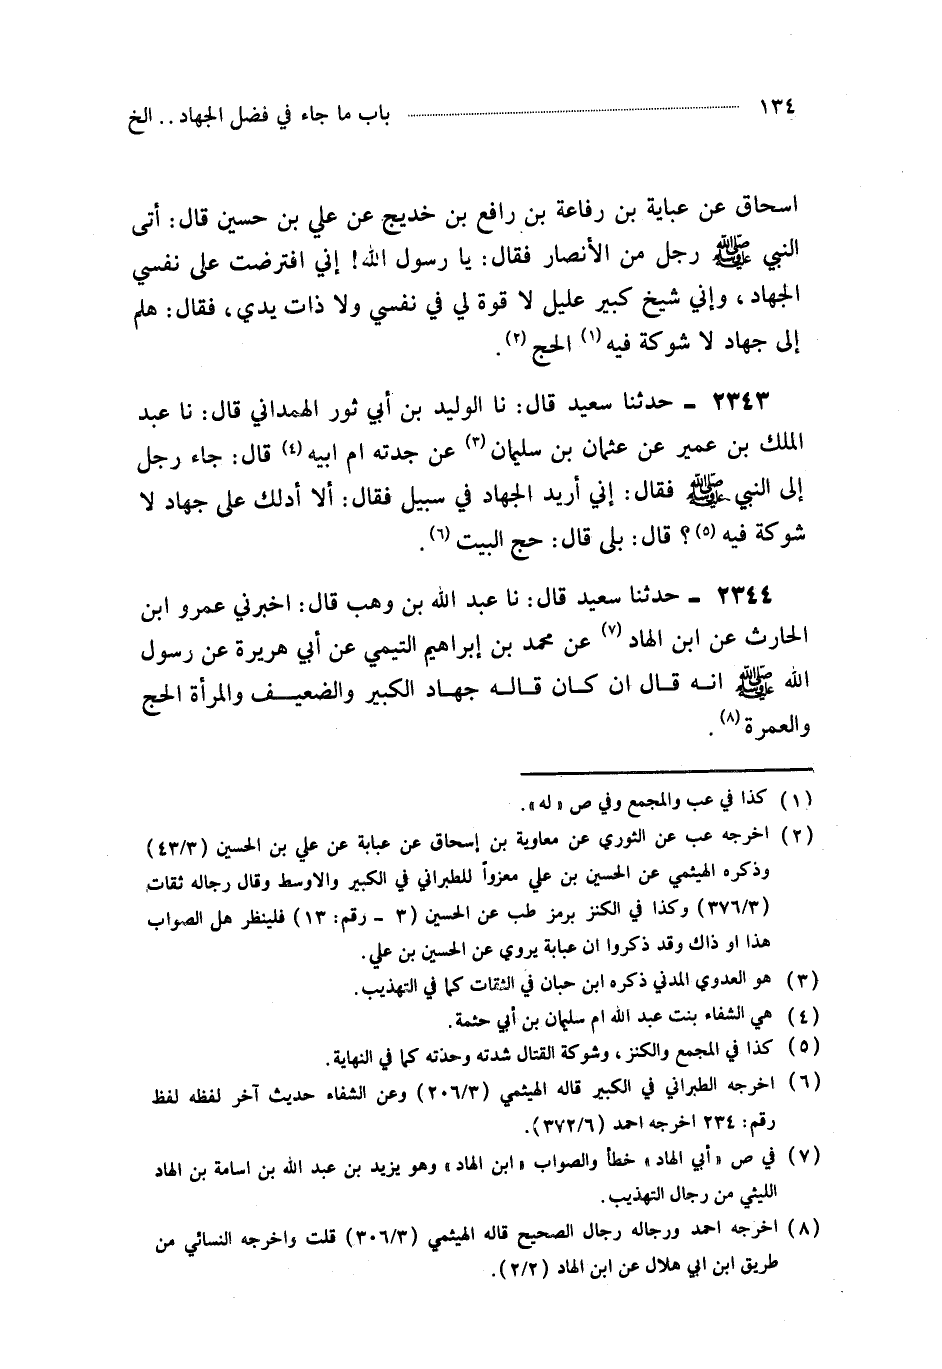 ١٣٤ باب ما جاء في فضل الجهاد .. الخ
اسحاق عن عباية بن رفاعة بن رافع بن خديج عن علي بن حسين قال: أتى
النبي ﷺ رجل من الأنصار فقال: يا رسول الله! إني افترضت على نفسي
الجهاد، وإني شيخ كبير عليل لا قوة لي في نفسي ولا ذات يدي، فقال: هلم
إلى جهاد لا شوكة فيه (١) الحج (٢).
٢٣٤٣ ـ حدثنا سعيد قال: نا الوليد بن أبي ثور الهمداني قال: نا عبد
الملك بن عمير عن عثمان بن سليمان (٣) عن جدته ام ابيه (٤) قال: جاء رجل
إلى النبي ﷺ فقال: إني أريد الجهاد في سبيل فقال: ألا أدلك على جهاد لا
شوكة فيه (٥)؟ قال: بلى قال: حج البيت (٦).
٢٣٤٤ ـ حدثنا سعيد قال: نا عبد الله بن وهب قال: اخبرني عمرو ابن
الحارث عن ابن الهاد (٧) عن محمد بن إبراهيم التيمي عن أبي هريرة عن رسول
الله ﷺ انه قال ان كان قاله جهاد الكبير والضعيف والمرأة الحج
والعمرة (٨).
(١) كذا في عب والمجمع وفي ص «له».
(٢) اخرجه عب عن الثوري عن معاوية بن إسحاق عن عبابة عن علي بن الحسين (٤٣/٣)
وذكره الهيثمي عن الحسين بن علي معزواً للطبراني في الكبير والاوسط وقال رجاله ثقات
(٣٧٦/٣) وكذا في الكنز برمز طب عن الحسين (٣ ـ رقم: ١٣) فلينظر هل الصواب
هذا او ذاك وقد ذكروا ان عبابة يروي عن الحسين بن علي.
(٣) هو العدوي المدني ذكره ابن حبان في الثقات كما في التهذيب.
(٤) هي الشفاء بنت عبد الله ام سليمان بن أبي حثمة.
(٥) كذا في المجمع والكنز، وشوكة القتال شدته وحذته كما في النهاية.
(٦) اخرجه الطبراني في الكبير قاله الهيثمي (٢٠٦/٣) وعن الشفاء حديث آخر لفظه لفظ
رقم: ٢٣٤ اخرجه احمد (٣٧٢/٦).
(٧) في ص «أبي الهاد» خطأ والصواب «ابن الهاد» وهو يزيد بن عبد الله بن اسامة بن الهاد
الليثي من رجال التهذيب.
(٨) اخرجه احمد ورجاله رجال الصحيح قاله الهيثمي (٣٠٦/٣) قلت واخرجه النسائي من
طريق ابن ابي هلال عن ابن الهاد (٢/٢).